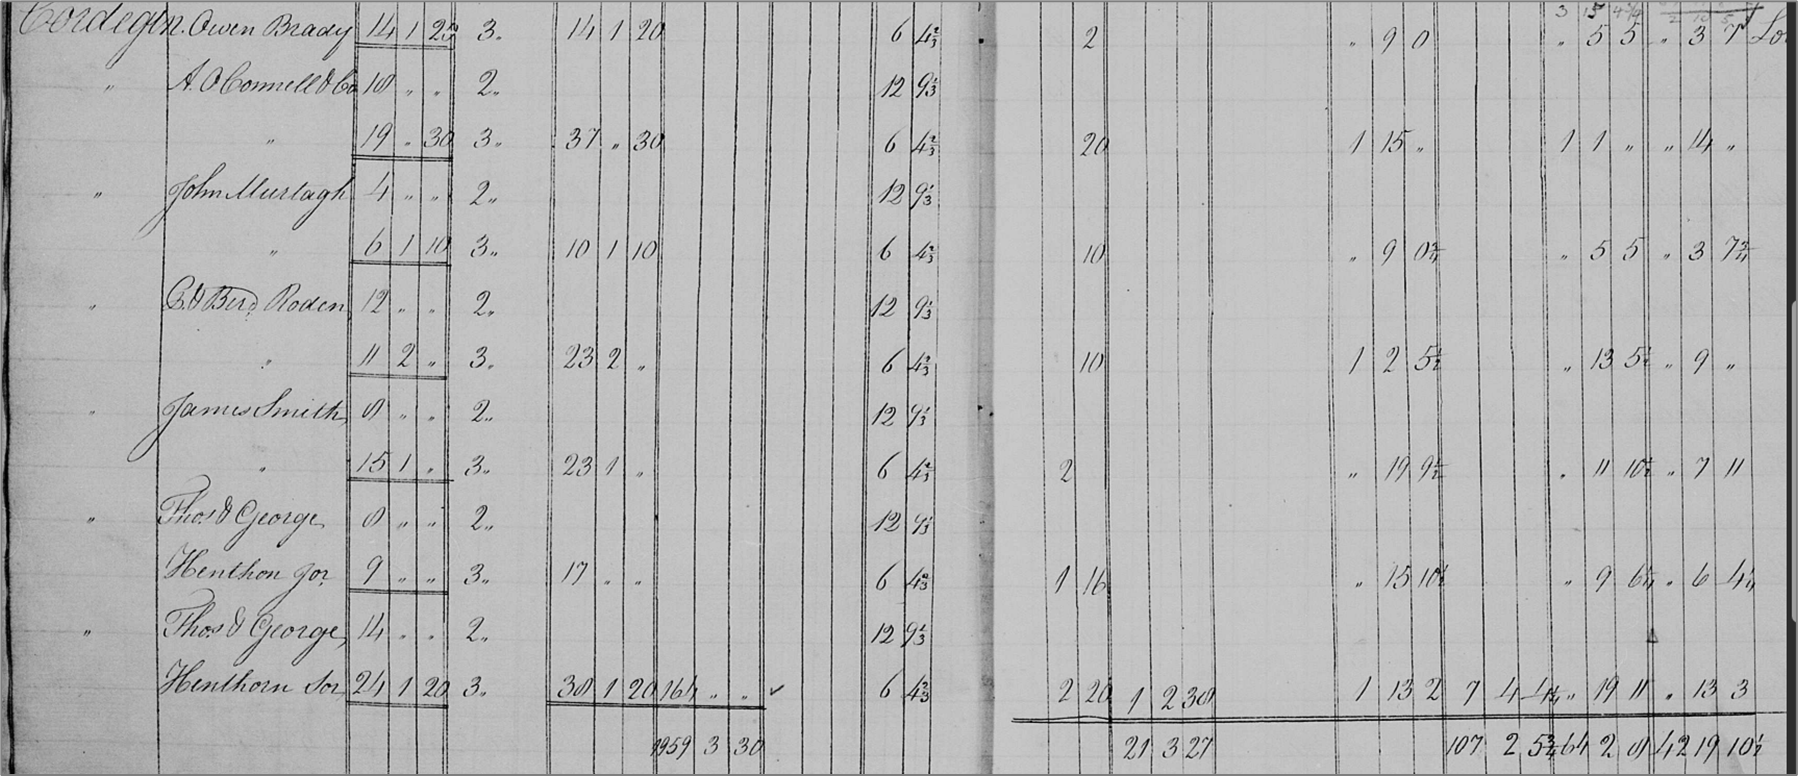 Cordegin. Owen Brady 14 1 20 3 „ 14 1 20 6 4⅔ 2 „ 9 0 „ 5 5 „ 3 7
„ A. O Connell & Co 18 „ „ 2 „ 12 9⅓
„ 19 „ 30 3 „ 37 „ 30 6 4⅔ 20 1 15 „ 1 1 „ „ 14 „
„ John Murtagh 4 „ „ 2 „ 12 9⅓
„ 6 1 10 3 „ 10 1 10 6 4⅔ 10 „ 9 0¾ „ 5 5 „ 3 7¾
„ Roden 12 „ „ 2 „ 12 9⅓
„ 11 2 „ 3 „ 23 2 „ 6 4⅔ 10 1 2 5½ „ 13 5½ „ 9 „
„ James Smith 8 „ „ 2 „ 12 9⅓
„ 15 1 „ 3 „ 23 1 „ 6 4⅔ 2 „ 19 9½ „ 11 10½ „ 7 11
„ Thos & George 8 „ „ 2 „ 12 9⅓
Henthon Jor 9 „ „ 3 „ 17 „ „ 6 4⅔ 1 16 „ 15 10½ „ 9 6¼ „ 6 4¼
„ Thos & George 14 „ „ 2 „ 12 9⅓
Henthorn Sor 24 1 20 3 „ 38 1 20 164 „ „ ✓ 6 4⅔ 2 20 1 2 38 1 13 2 7 4 4¼ „ 19 11 „ 13 3
1959 3 30 21 3 27 107 2 5¾ 64 2 8 42 19 10½